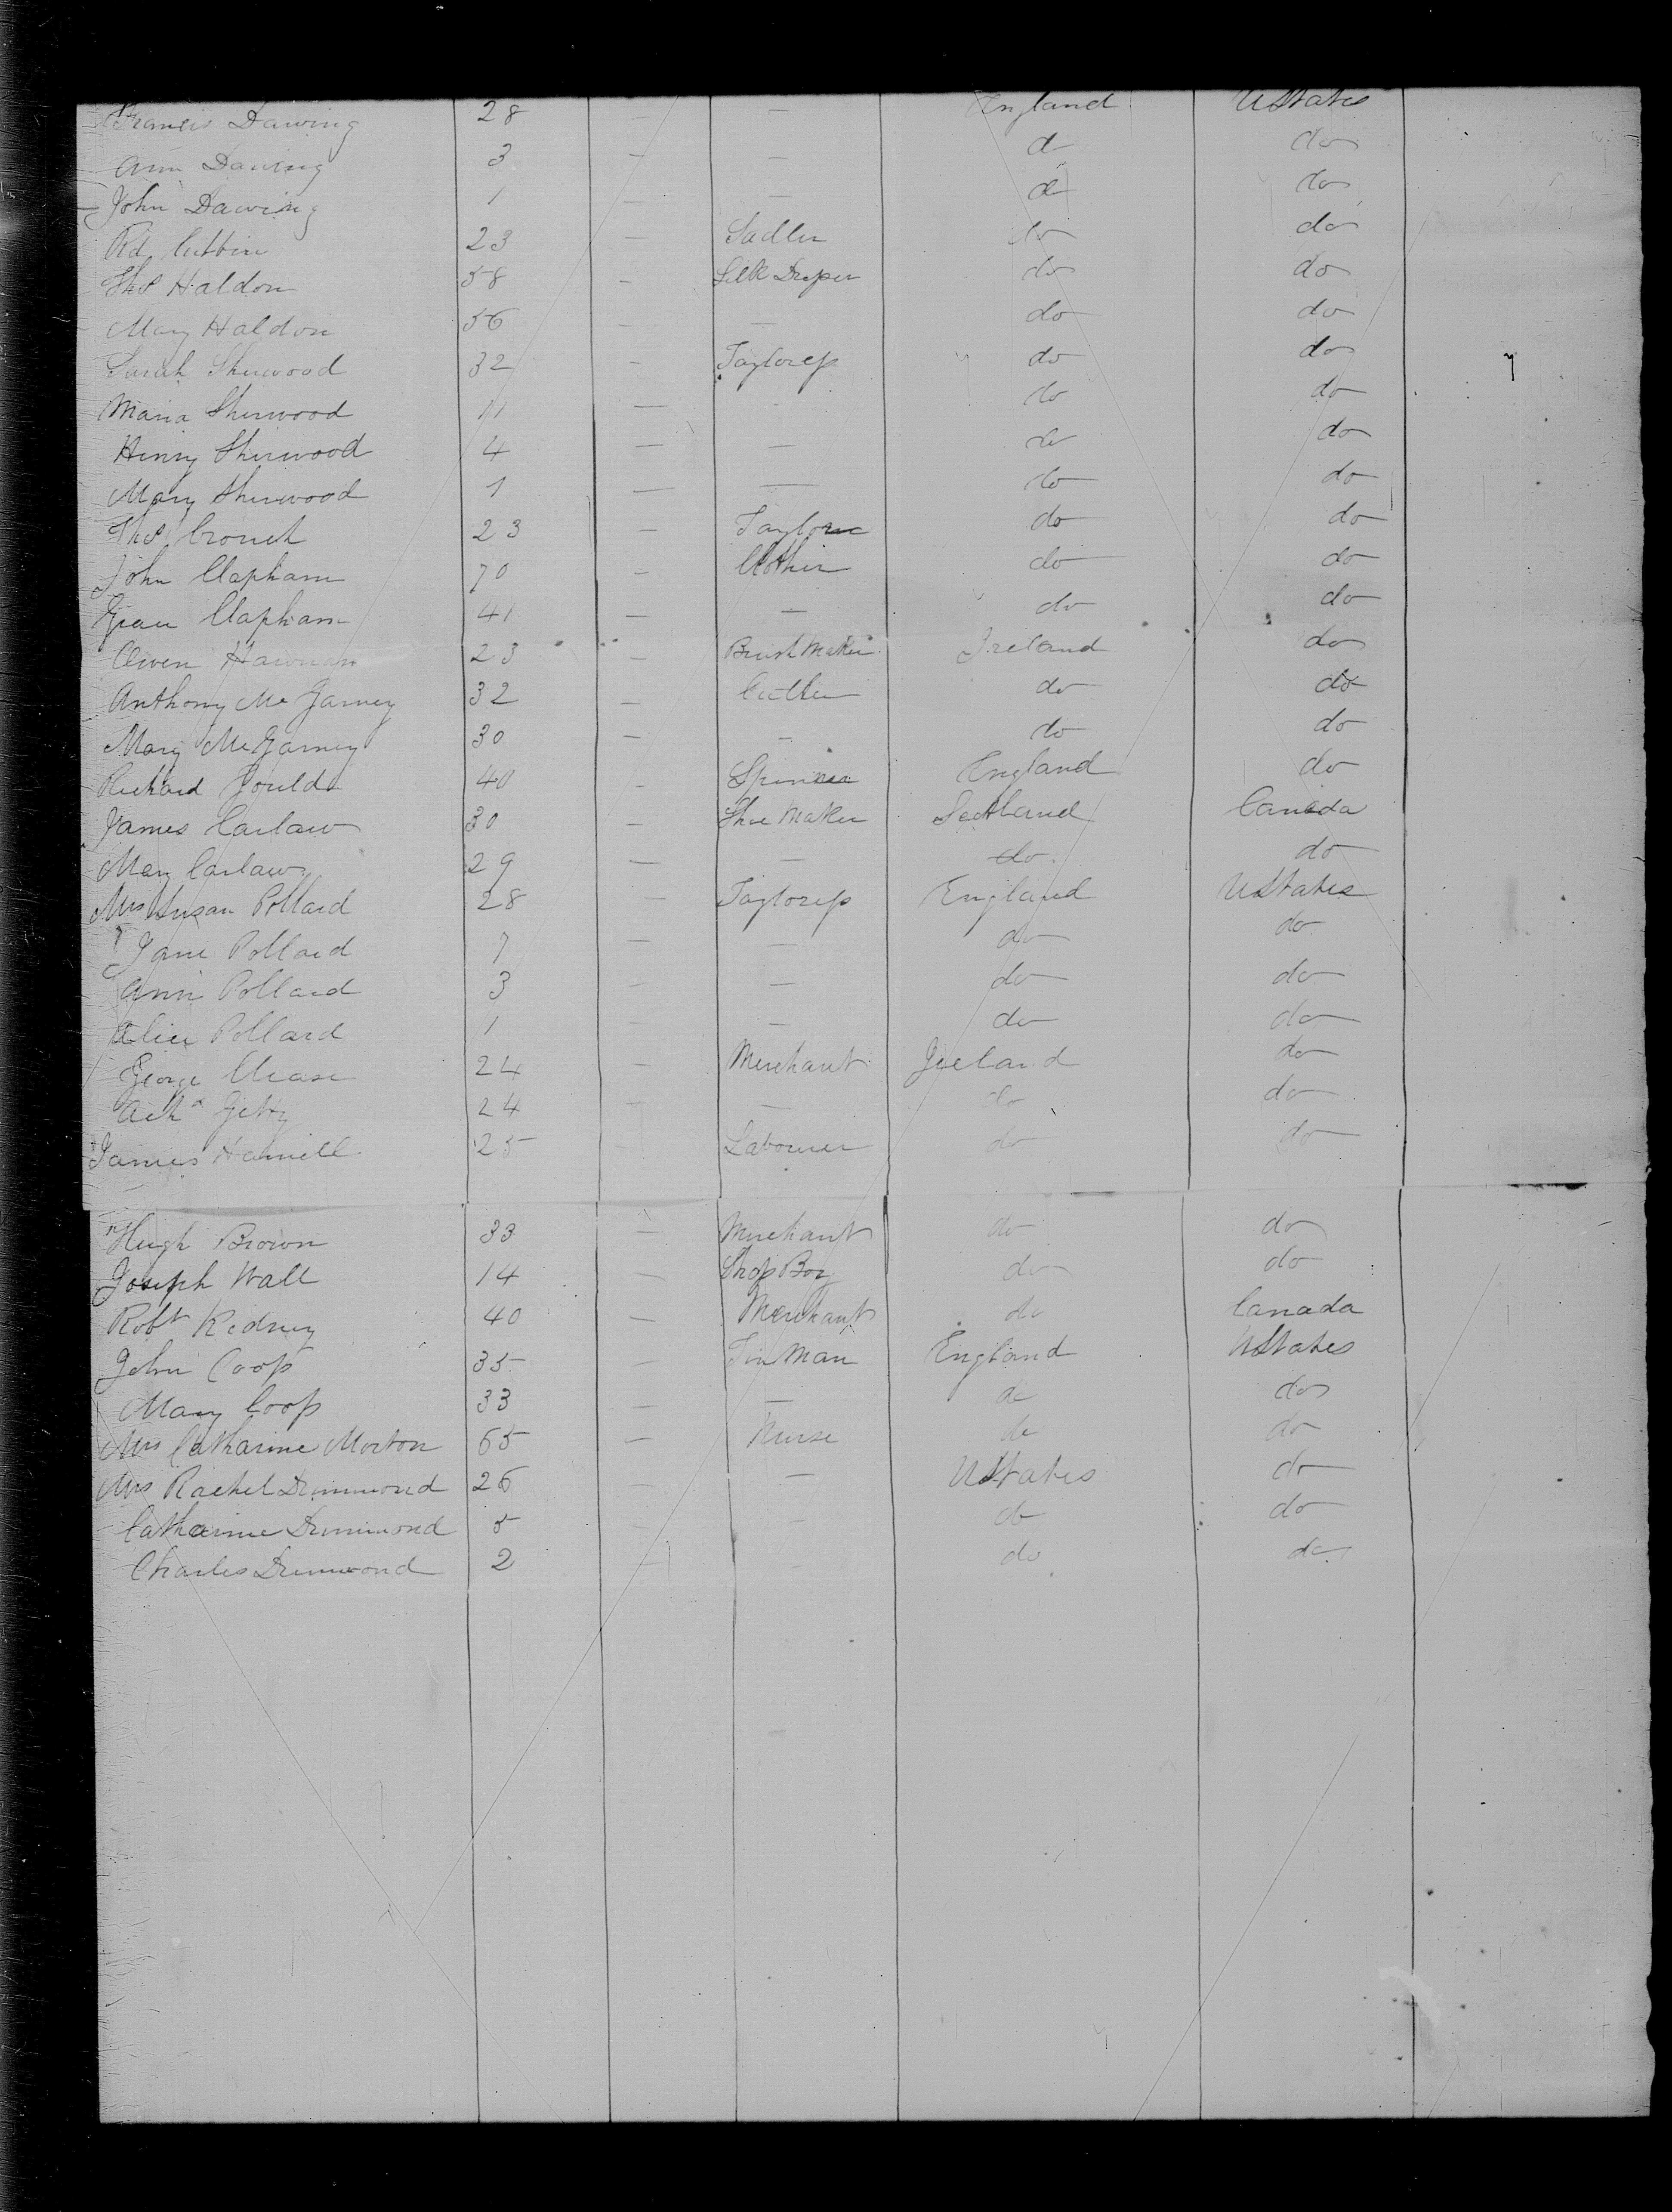 Francis Dawing 28 — — England UStates
Ann Dawing 3 — — do do
John Dawing 1 — — do do
Rd Cuttin 23 — Sadler do do
Thos Haldon 58 — Silk Draper do do
Mary Haldon 56 — — do do
Sarah Sherwood 32 — Tayloress do do
Maria Sherwood 11 — - do do
Henry Sherwood 4 — — do do
Mary Sherwood 1 — — do do
Thos Crouch 23 — Taylor do do
John Clapham 70 — Clothier do do
Grace Clapham 41 — — do do
Owen 23 — Brush Maker Ireland do
Anthony McGarvey 32 — Cutler do do
Mary McGarvey 30 — - do do
Richard Gould 40 — Spinner England do
James Carlaw 30 Shoe Maker Scotland Canada
Mary Carlaw 29 — — do do
Mrs Susan Pollard 28 — Tayloress England UStates
Jane Pollard 7 — — do do
Ann Pollard 3 — — do do
Alice Pollard 1 — — do do
George Chase 24 — Merchant Ireland do
Getty 24 — — do do
James Hamill 25 Labourer do do
Hugh Brown 33 — Merchant do do
Joseph Wall 14 — Shop Boy do do
Robt Kidney 40 — Merchant do Canada
John Coop 35 — Tin Man England UStates
Mary Coop 33 — — do do
Mrs Catharine Morton 65 — Nurse do do
Mrs Rachel Drummond 26 — — UStates do
Catharine Drummond 5 — — do do
Charles Drummond 2 — - do do